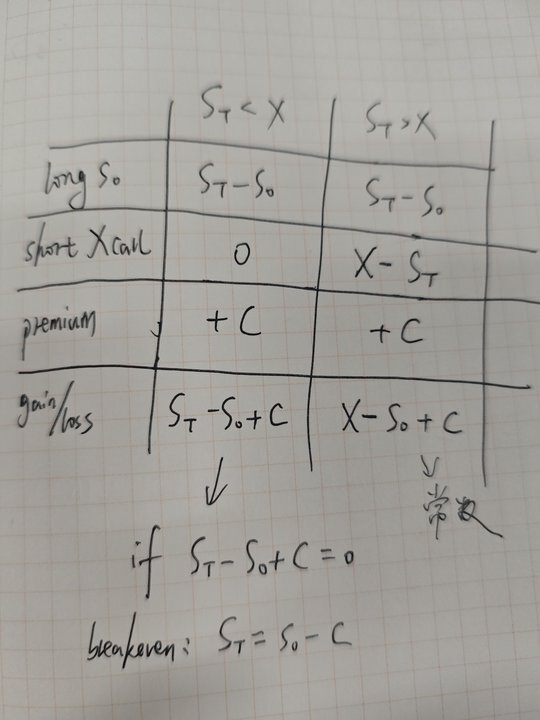 S_T < X S_T > X
long S₀ S_T - S₀ S_T - S₀
short X call 0 X - S_T
premium + C + C
gain/loss S_T - S₀ + C X - S₀ + C
常数
if S_T - S₀ + C = 0
breakeven: S_T = S₀ - C